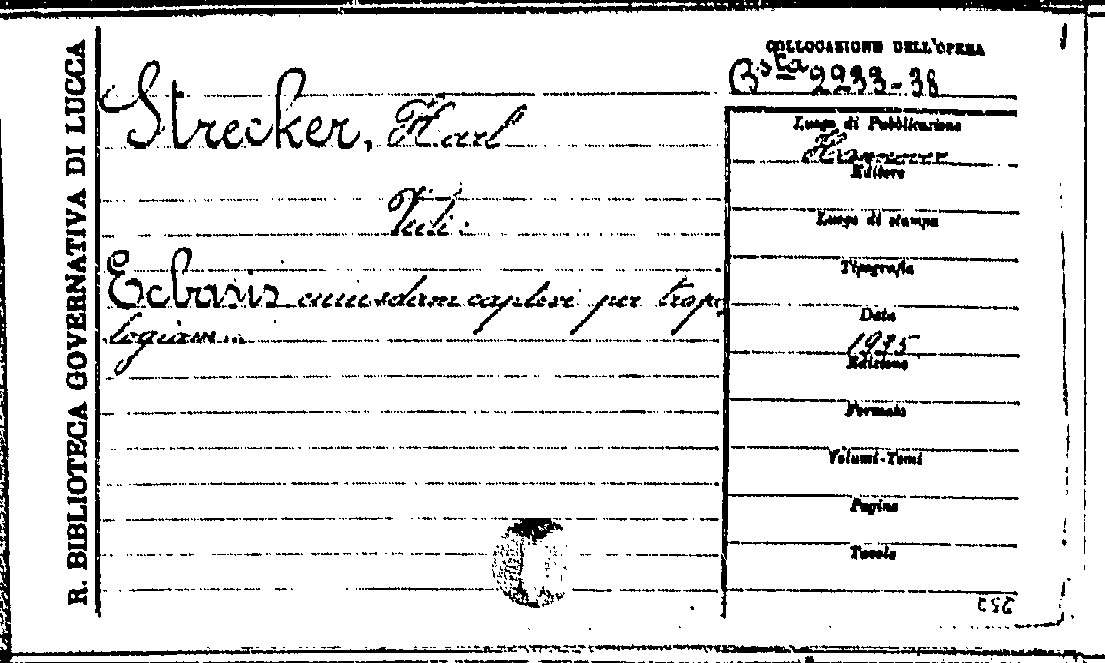 R. BIBLIOTECA GOVERNATIVA DI LUCCA
COLLOCAZIONE DELL'OPERA
Bsta 2233-38
Strecker, Karl
Vedi:
Ecbasis cuiusdam captivi per tropo
logiam...
Luogo di Pubblicazione
Hannover
Editore
Luogo di stampa
Tipografia
Data
1935
Edizione
Formato
Volumi-Tomi
Pagine
Tavole
252